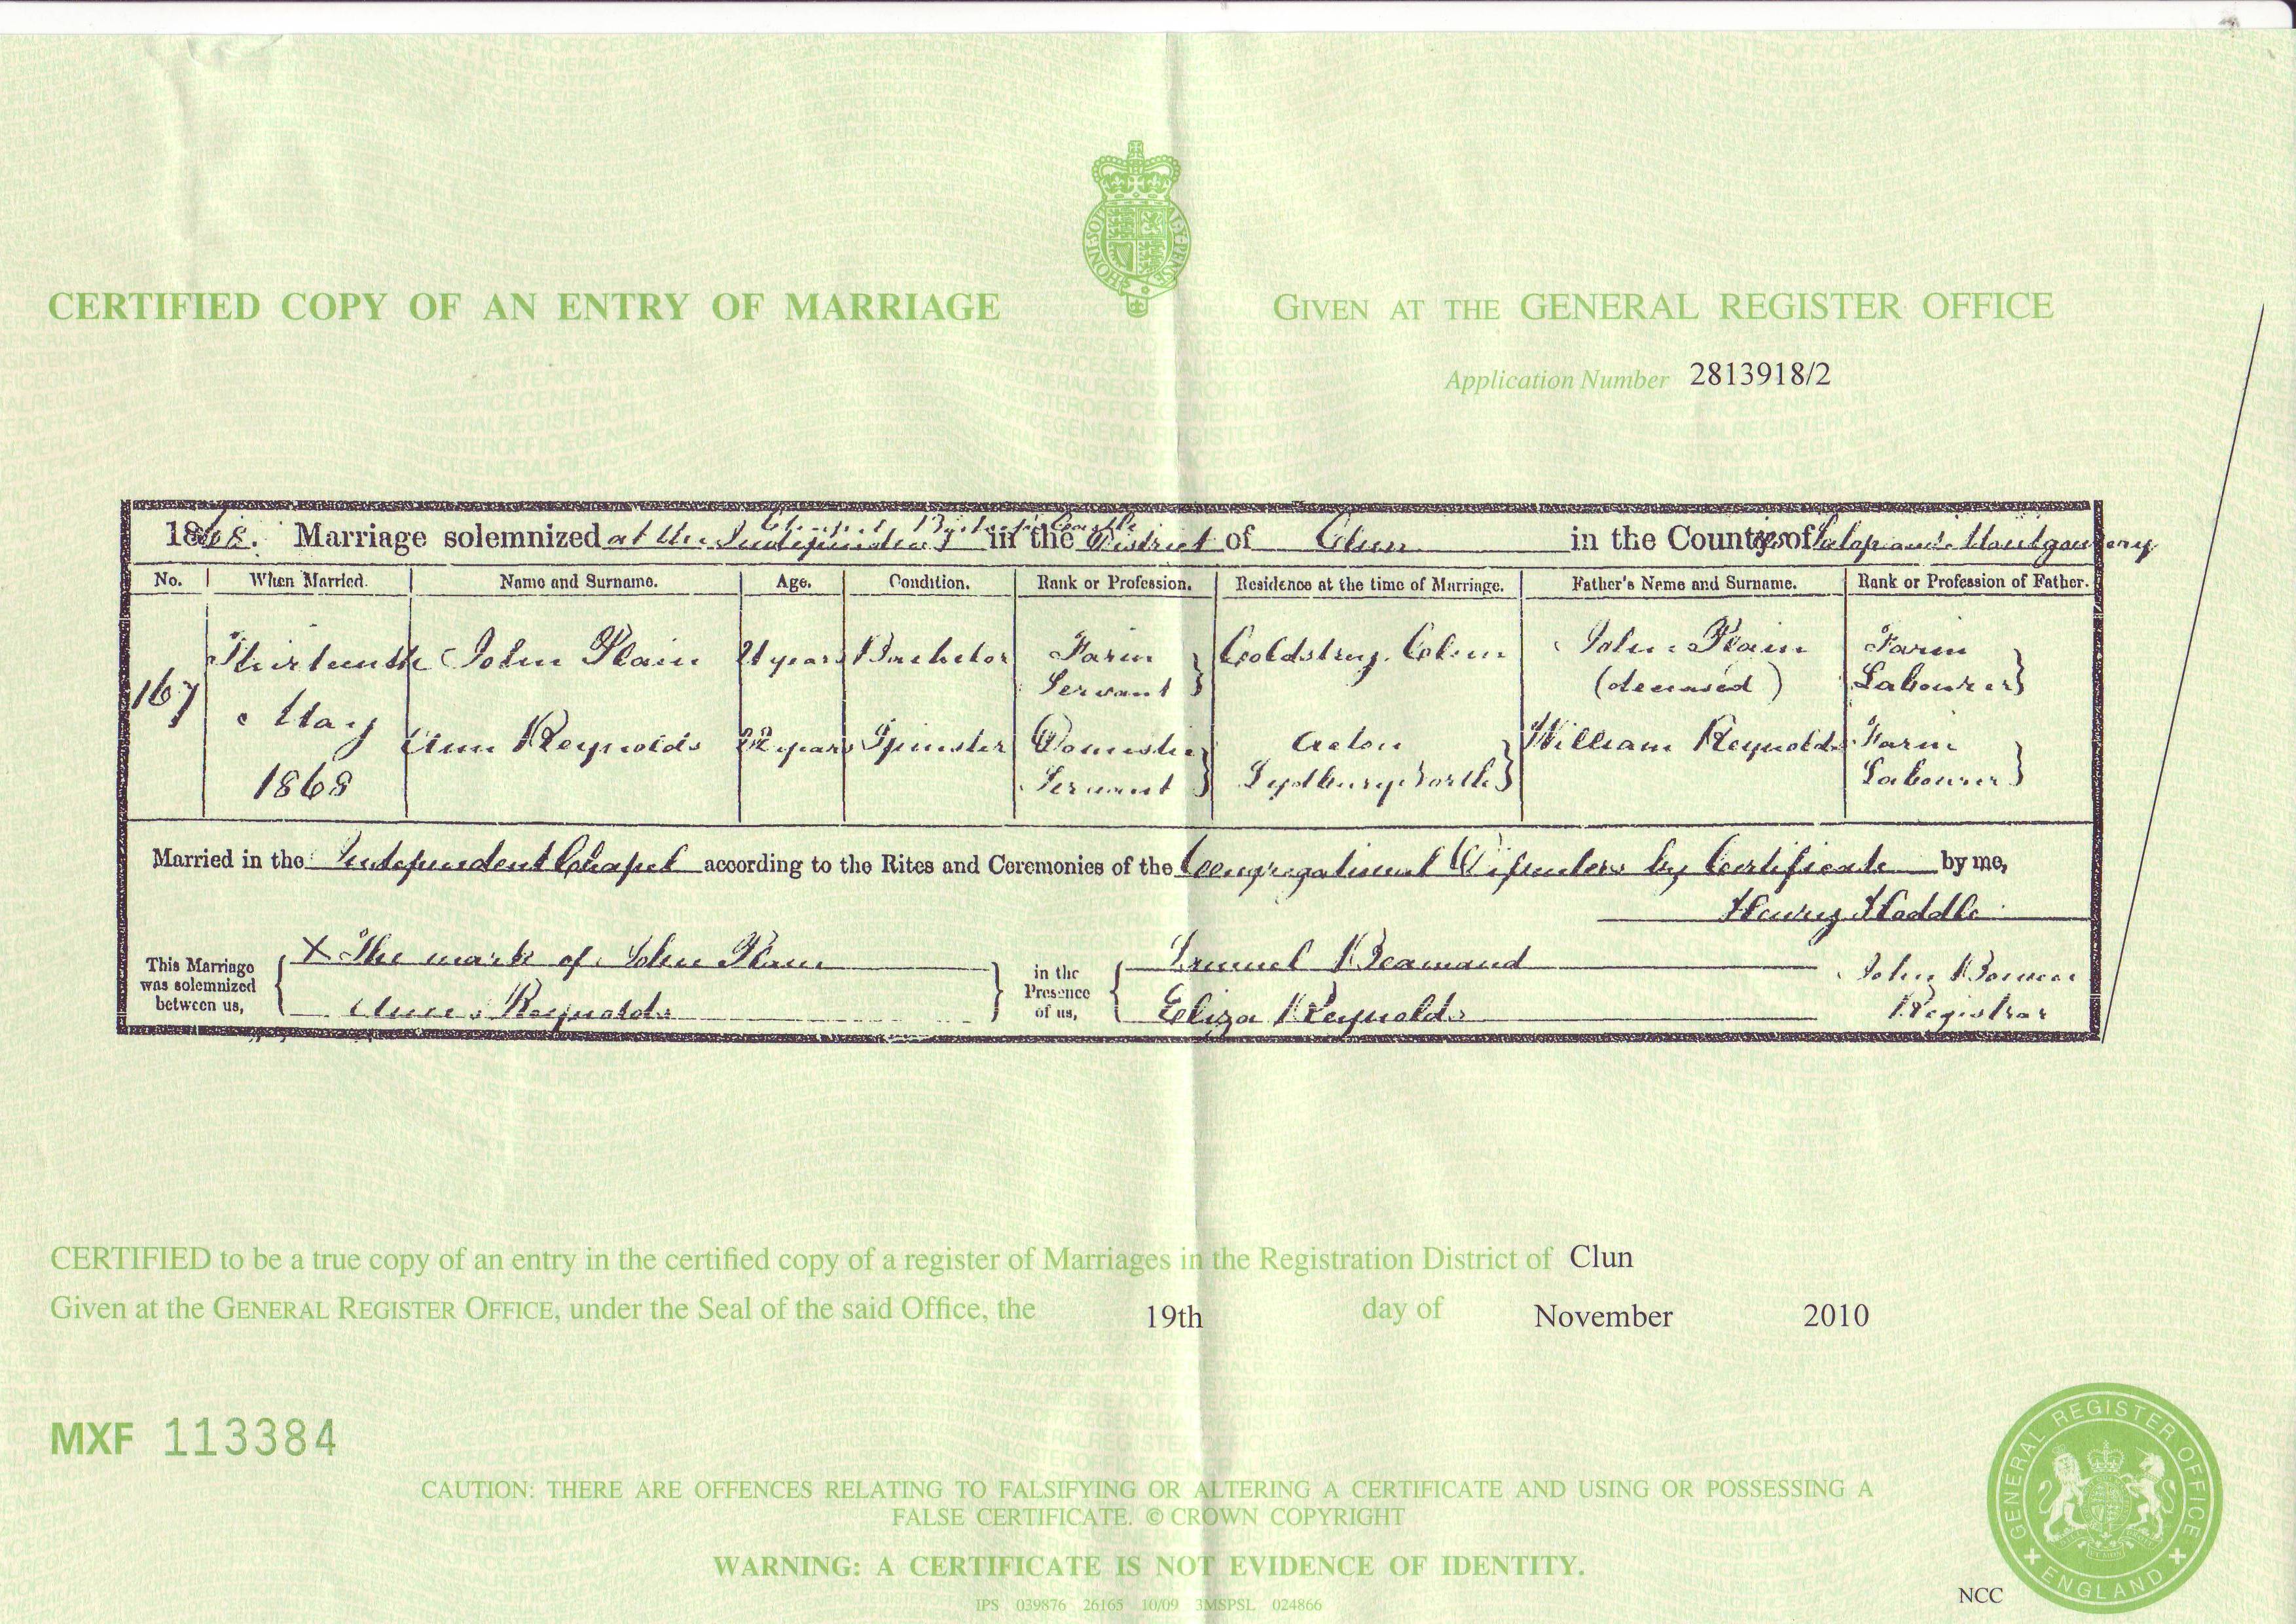 CERTIFIED COPY OF AN ENTRY OF MARRIAGE
GIVEN AT THE GENERAL REGISTER OFFICE
Application Number 2813918/2
1868. Marriage solemnized at the Independent Chapel Bishop's Castle in the District of Clun in the Counties of Salop and Montgomery
No. When Married. Name and Surname. Age. Condition. Rank or Profession. Residence at the time of Marriage. Father's Name and Surname. Rank or Profession of Father.
167 Thirteenth John Plain 21 years Bachelor Farm John Plain Farm
Servant (deceased) Labourer
May Ann Reynolds 22 years Spinster Domestic Acton William Reynolds Farm
1868 Servant Lydbury North Labourer
Married in the Independent Chapel according to the Rites and Ceremonies of the Congregational Dissenters by Certificate by me,
Henry
This Marriage was solemnized between us,
X The mark of John Plain
Ann Reynolds
in the Presence of us,
Beamand
Eliza Reynolds
John
Registrar
CERTIFIED to be a true copy of an entry in the certified copy of a register of Marriages in the Registration District of Clun
Given at the GENERAL REGISTER OFFICE, under the Seal of the said Office, the 19th day of November 2010
MXF 113384
CAUTION: THERE ARE OFFENCES RELATING TO FALSIFYING OR ALTERING A CERTIFICATE AND USING OR POSSESSING A
FALSE CERTIFICATE. © CROWN COPYRIGHT
WARNING: A CERTIFICATE IS NOT EVIDENCE OF IDENTITY.
IPS 039876 26165 10/09 3MSPSL 024866
NCC
GENERAL REGISTER OFFICE
ENGLAND